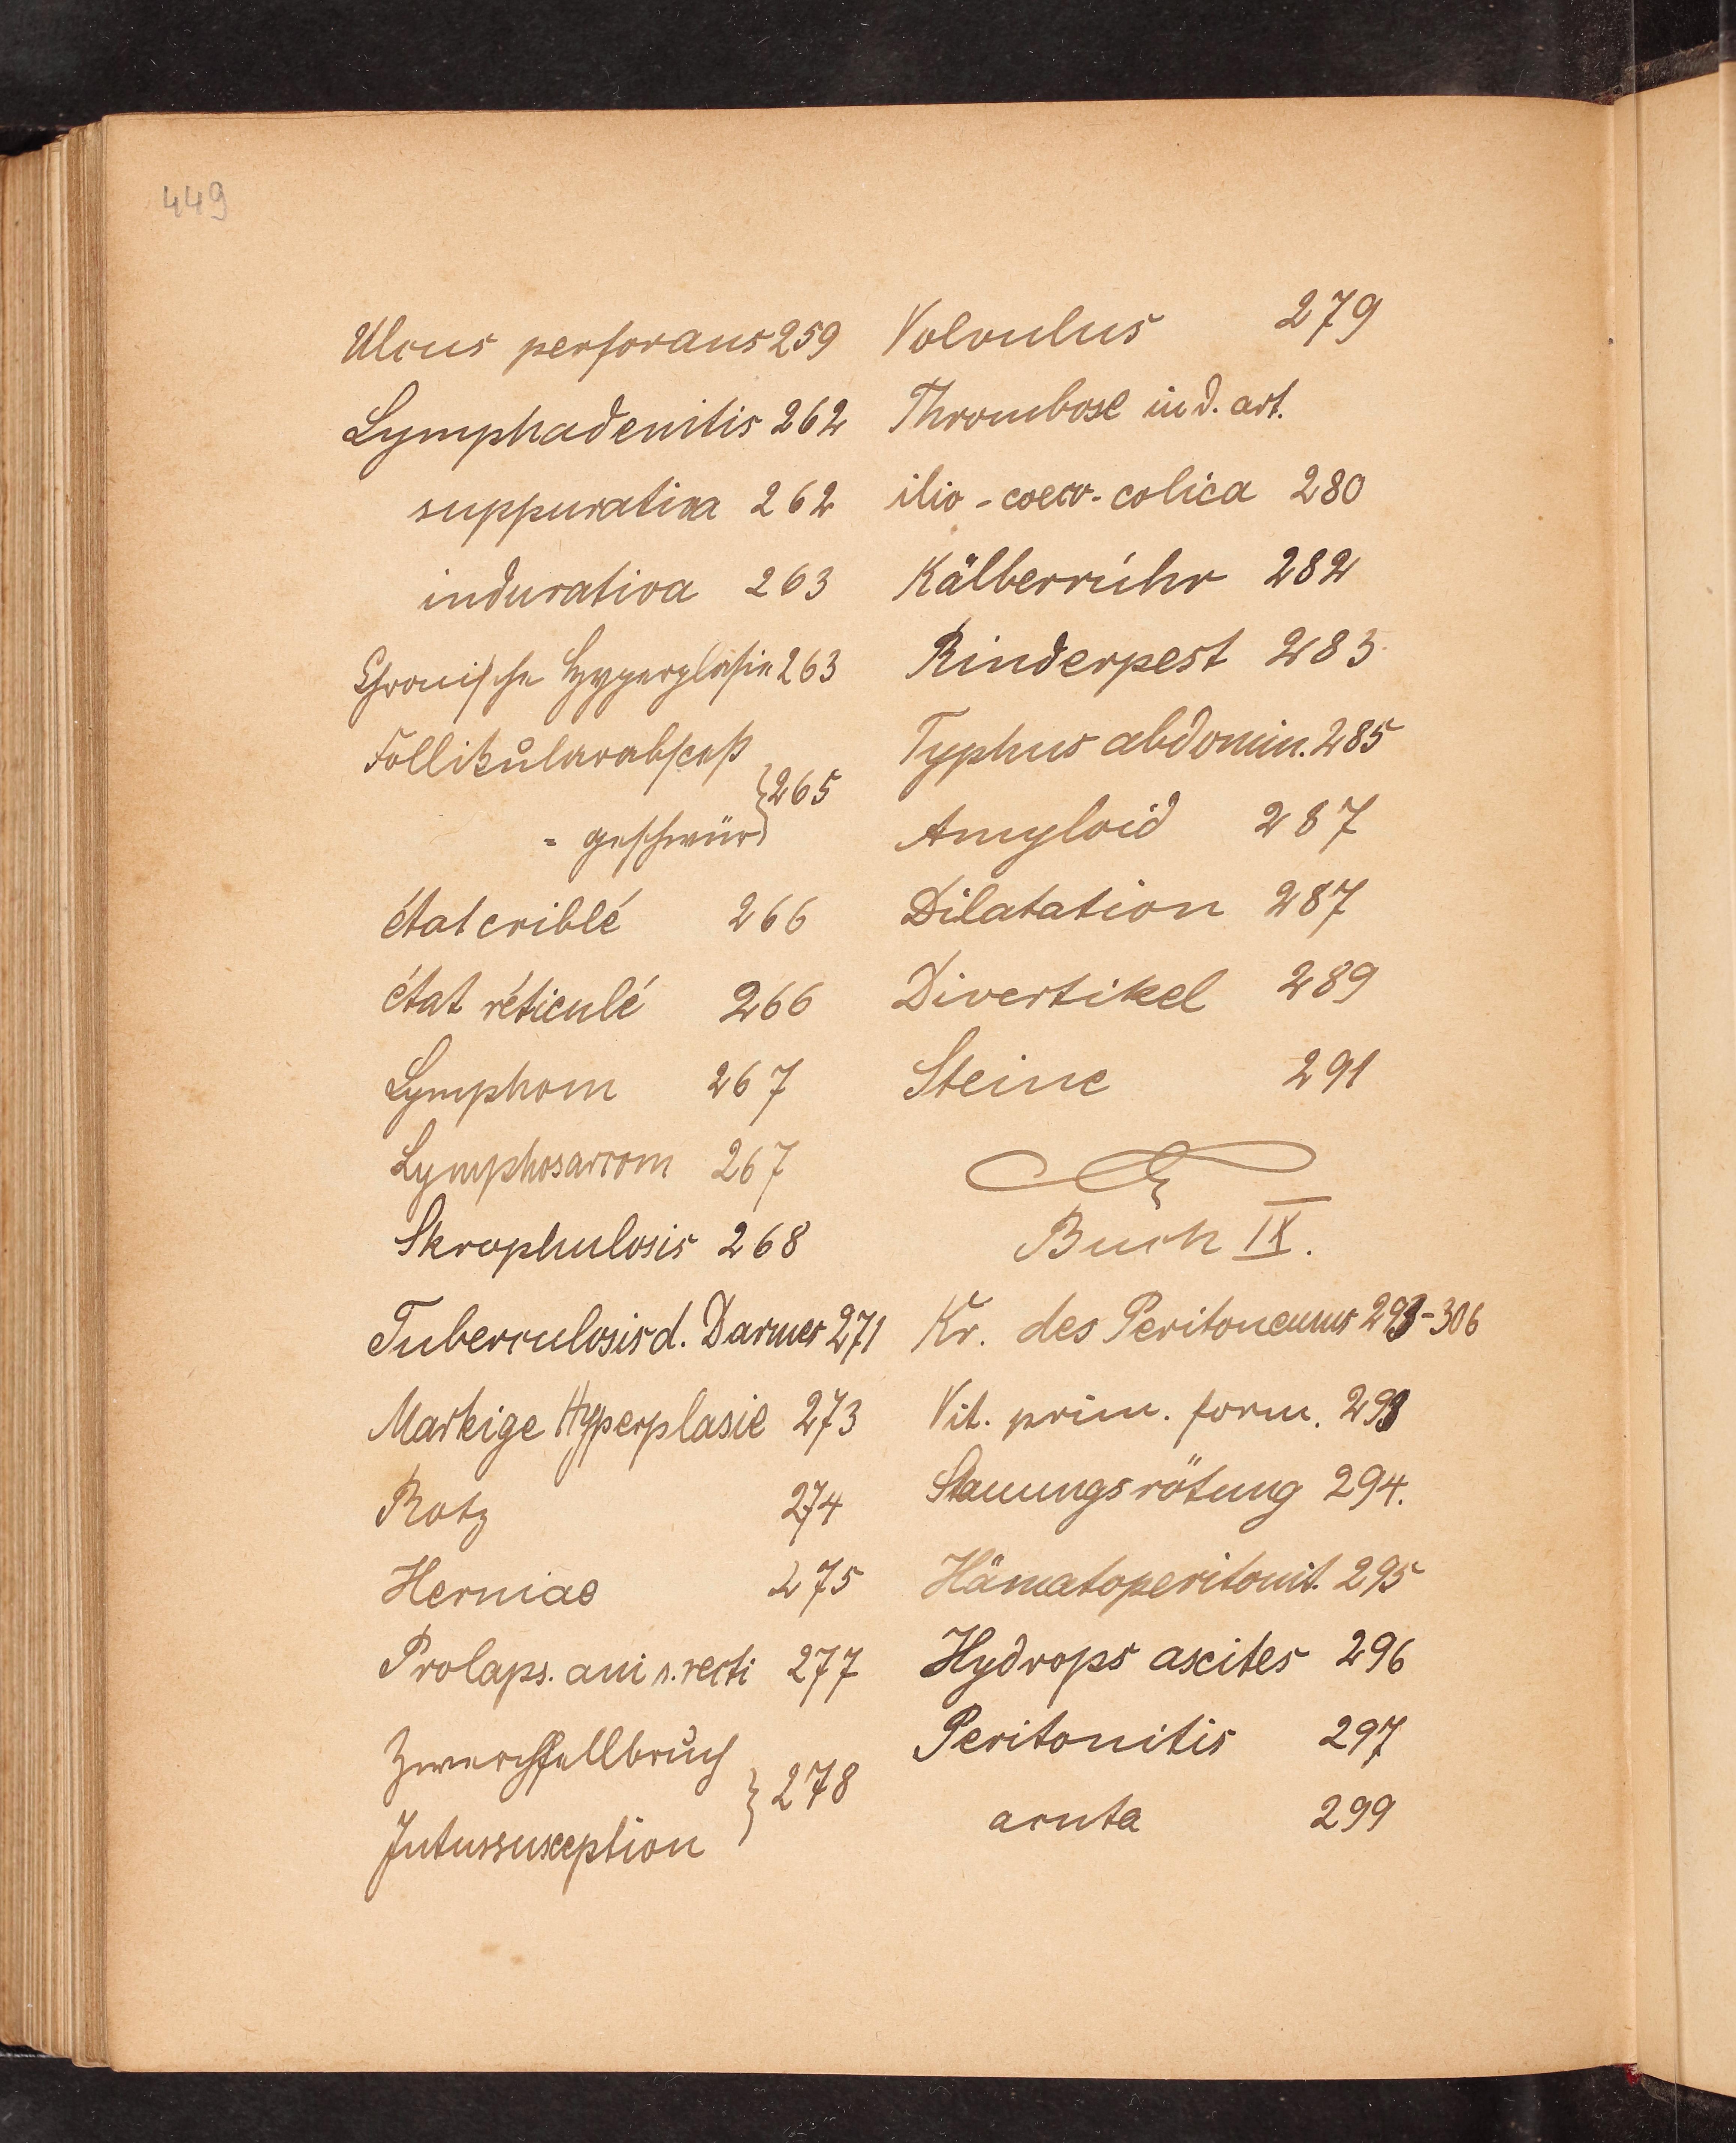 449
Ulcus perforans 259
Lymphadenitis 262
suppurativa 262
indurativa 263
Chronische Hyperplasie 263
Follikularabsceß
- geschwür } 265
état criblé 266
état réticulé 266
Lymphom 267
Lymphosarcom 267
Skrophulosis 268
Tuberculosis d. Darmes 271
Markige Hyperplasie 273
Rotz 274
Herniae 275
Prolaps. ani s. recti 277
Zwerchfellbruch
Intussusception } 278
Volvulus 279
Thrombose in d. art.
ilio-coeco-colica 280
Kälberruhr 282
Rinderpest 283
Typhus abdomin. 285
Amyloid 287
Dilatation 287
Divertikel 289
Steine 291
Buch IX.
Kr. des Peritoneums 293-306
Vit. prim. form. 293
Stauungsrötung 294.
Hämatoperitonit. 295
Hydrops ascites 296
Peritonitis 297
acuta 299